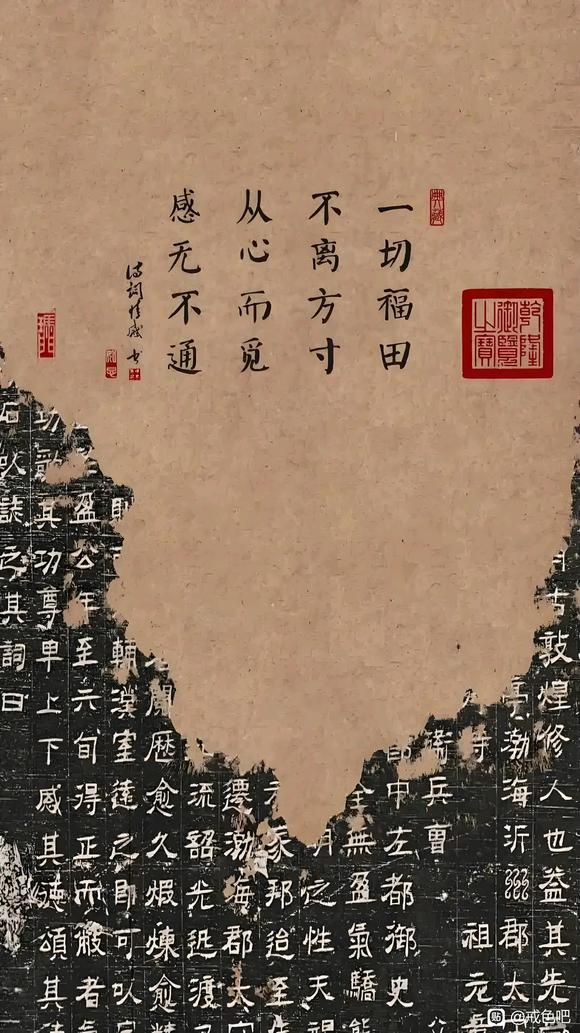 典藏
一切福田
不离方寸
从心而觅
感无不通
乾隆御覽之寶
古敦煌修人也蓋其先
渤海沂 郡太
祖元
衛兵曹
中左都御史
全無盈氣驕
之性天
家邦迨至
遷渤海郡太
流韶光迅渡
聞歷愈久煅煉愈精
輔漢室蓮之即可以
盈公年至六旬得正而 者
功歌其功尊卑上下感其德頌其德
石以誌之其詞曰
貼 @戒色吧